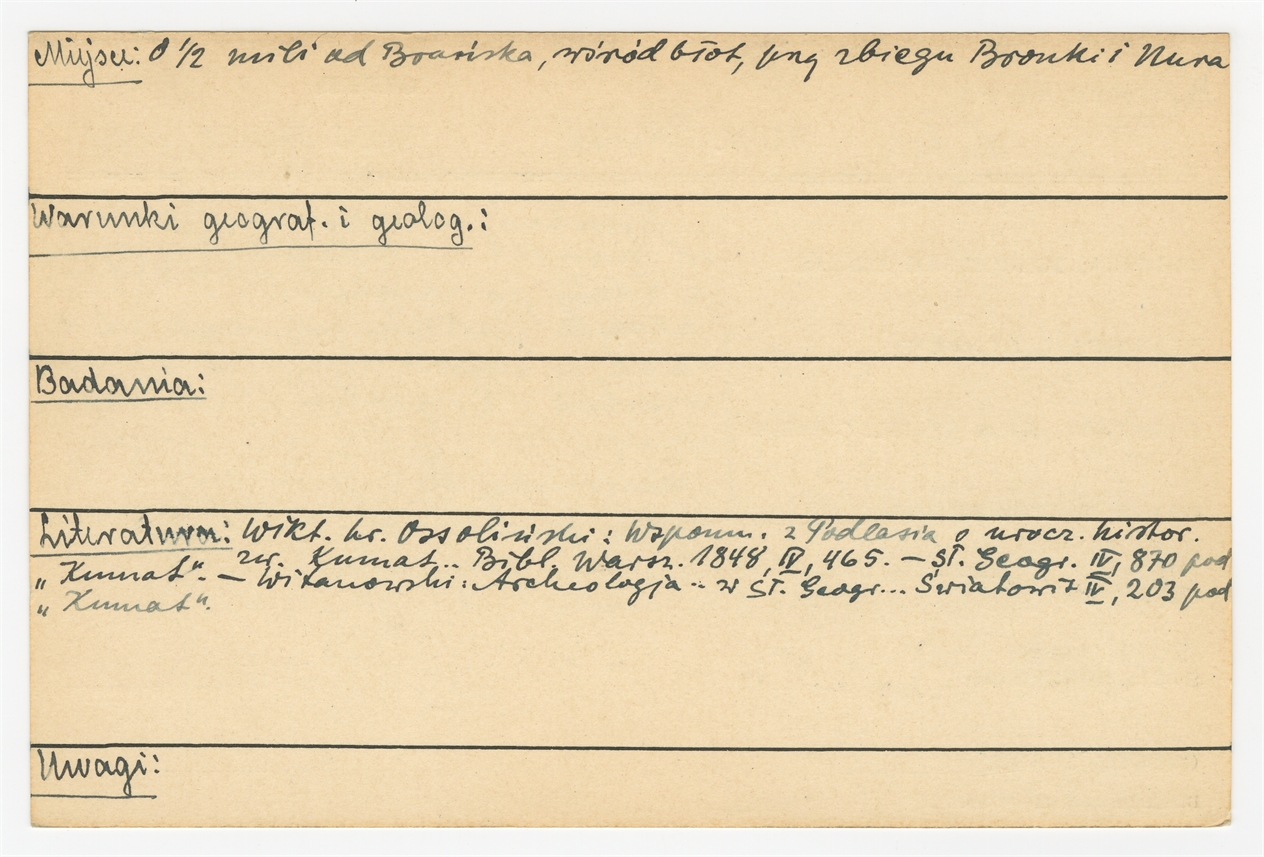 Miejsce: O 1/2 mili od Brańska, wśród błot, przy zbiegu Bronki i Nura
Warunki geograf. i geolog.:
Badania:
Literatura: Wikt. hr. Ossoliński: Wspomn. z Podlasia o urocz. histor.
zw. Kumat.. Bibl. Warsz. 1848, IV, 465. — Sł. Geogr. IV, 870 pod
„Kumat". — Witanowski: Archeologja.. w Sł. Geogr... Światowit IV, 203 pod
„Kumat".
Uwagi: